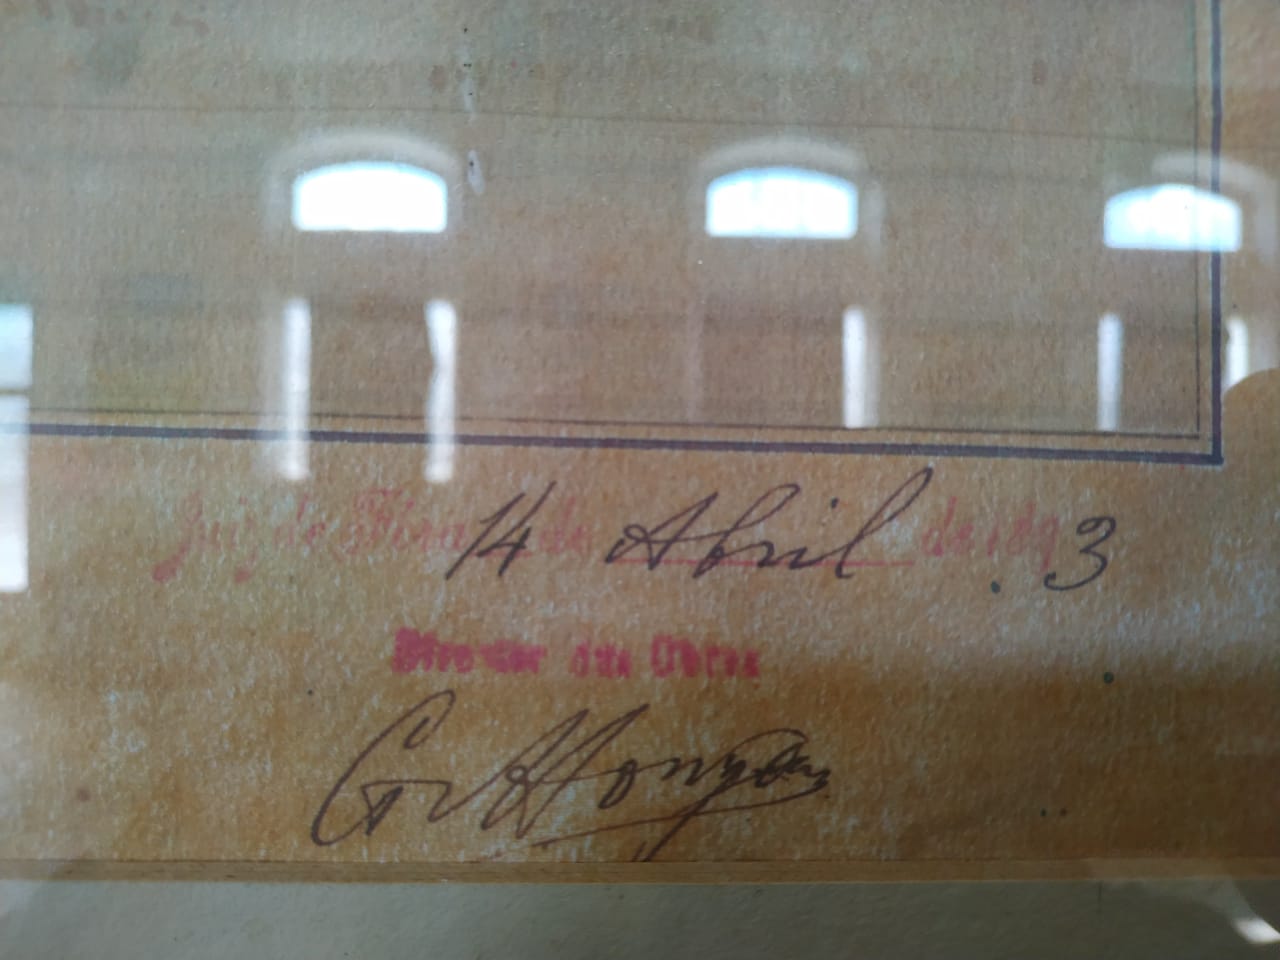 Juiz de Fóra 14 de Abril de 1893
Director das Obras